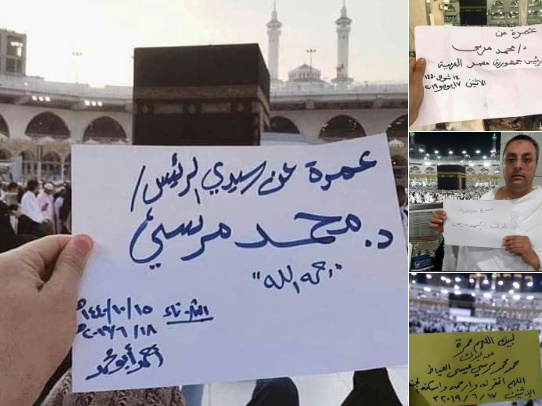 عمرة عن سيدي الرئيس/
د. محمد مرسي
"رحمه الله"
الثلاثاء ١٤٤٠/١٠/١٥هـ
٢٠١٩/٦/١٨م
عمرة عن
د/محمد مرسي
رئيس جمهورية مصر العربية
١٤ شوال ١٤٤٠
الاثنين ١٧ يونيو ٢٠١٩
لبيك اللهم عمرة
عن
محمد محمد مرسي عيسى العياط
اللهم اغفر له وارحمه واسكنه
الاثنين ٢٠١٩/٦/١٧